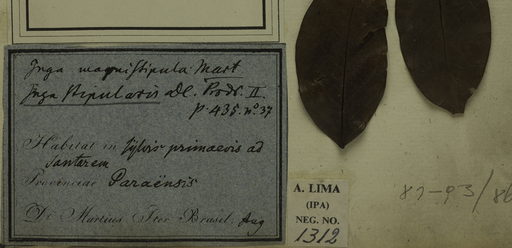 Inga magnistipula Mart
Inga stipularis DC. Prodr. II.
p. 435. no 37
Habitat in sylvis primaevis ad
Santarem
Provinciae Paraënsis
Dr Martius Iter Brasil. Aug
A. LIMA
(IPA)
NEG. NO.
1312
87-93/86